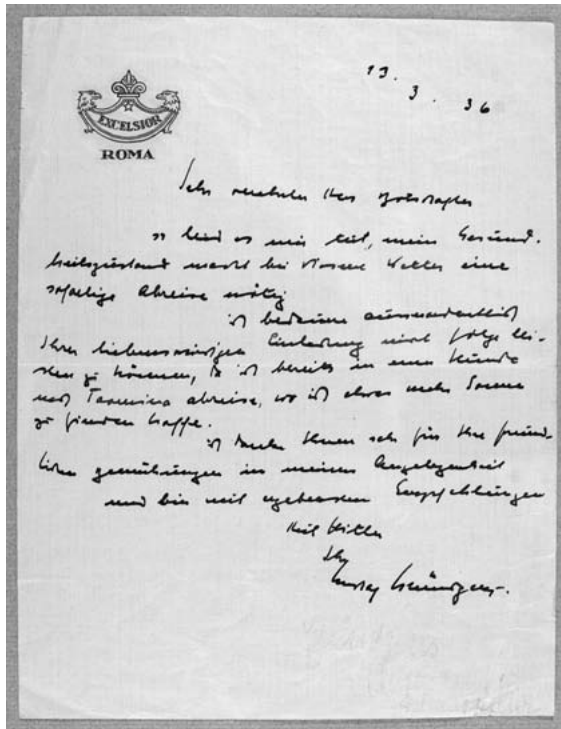 EXCELSIOR
ROMA
13.
3. 36
Sehr verehrter Herr
so leid es mir tut, mein Gesund-
heitszustand macht bei diesem Wetter eine
sofortige Abreise nötig
ich bedaure ausserordentlich
Ihrer liebenswürdigen Einladung nicht folge lei-
sten zu können, da ich bereits in einer Stunde
nach Taormina abreise, wo ich etwas mehr Sonne
zu finden hoffe.
ich danke Ihnen sehr für Ihre freund-
lichen Bemühungen in meiner Angelegenheit
und bin mit ergebensten Empfehlungen
Heil Hitler
Ihr
Gustaf Gründgens.